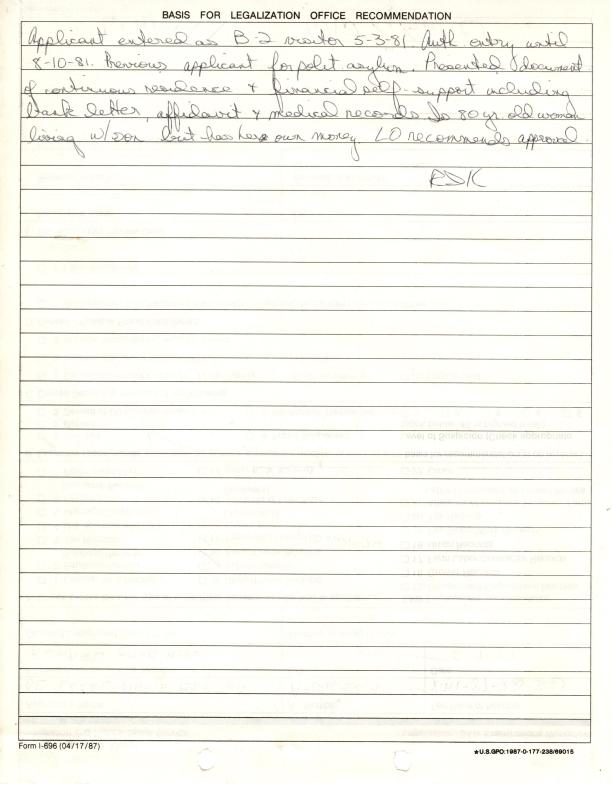 BASIS FOR LEGALIZATION OFFICE RECOMMENDATION
Applicant entered as B-2 visitor 5-3-81 Auth entry until
8-10-81. Previous applicant for polit. asylum. Presented document
of continuous residence & financial self-support including
bank letter, affidavit & medical records Is 80 yr old woman
living w/son but has her own money LO recommends approval
RDK
Form I-696 (04/17/87)
★U.S.GPO:1987-0-177-238/69015